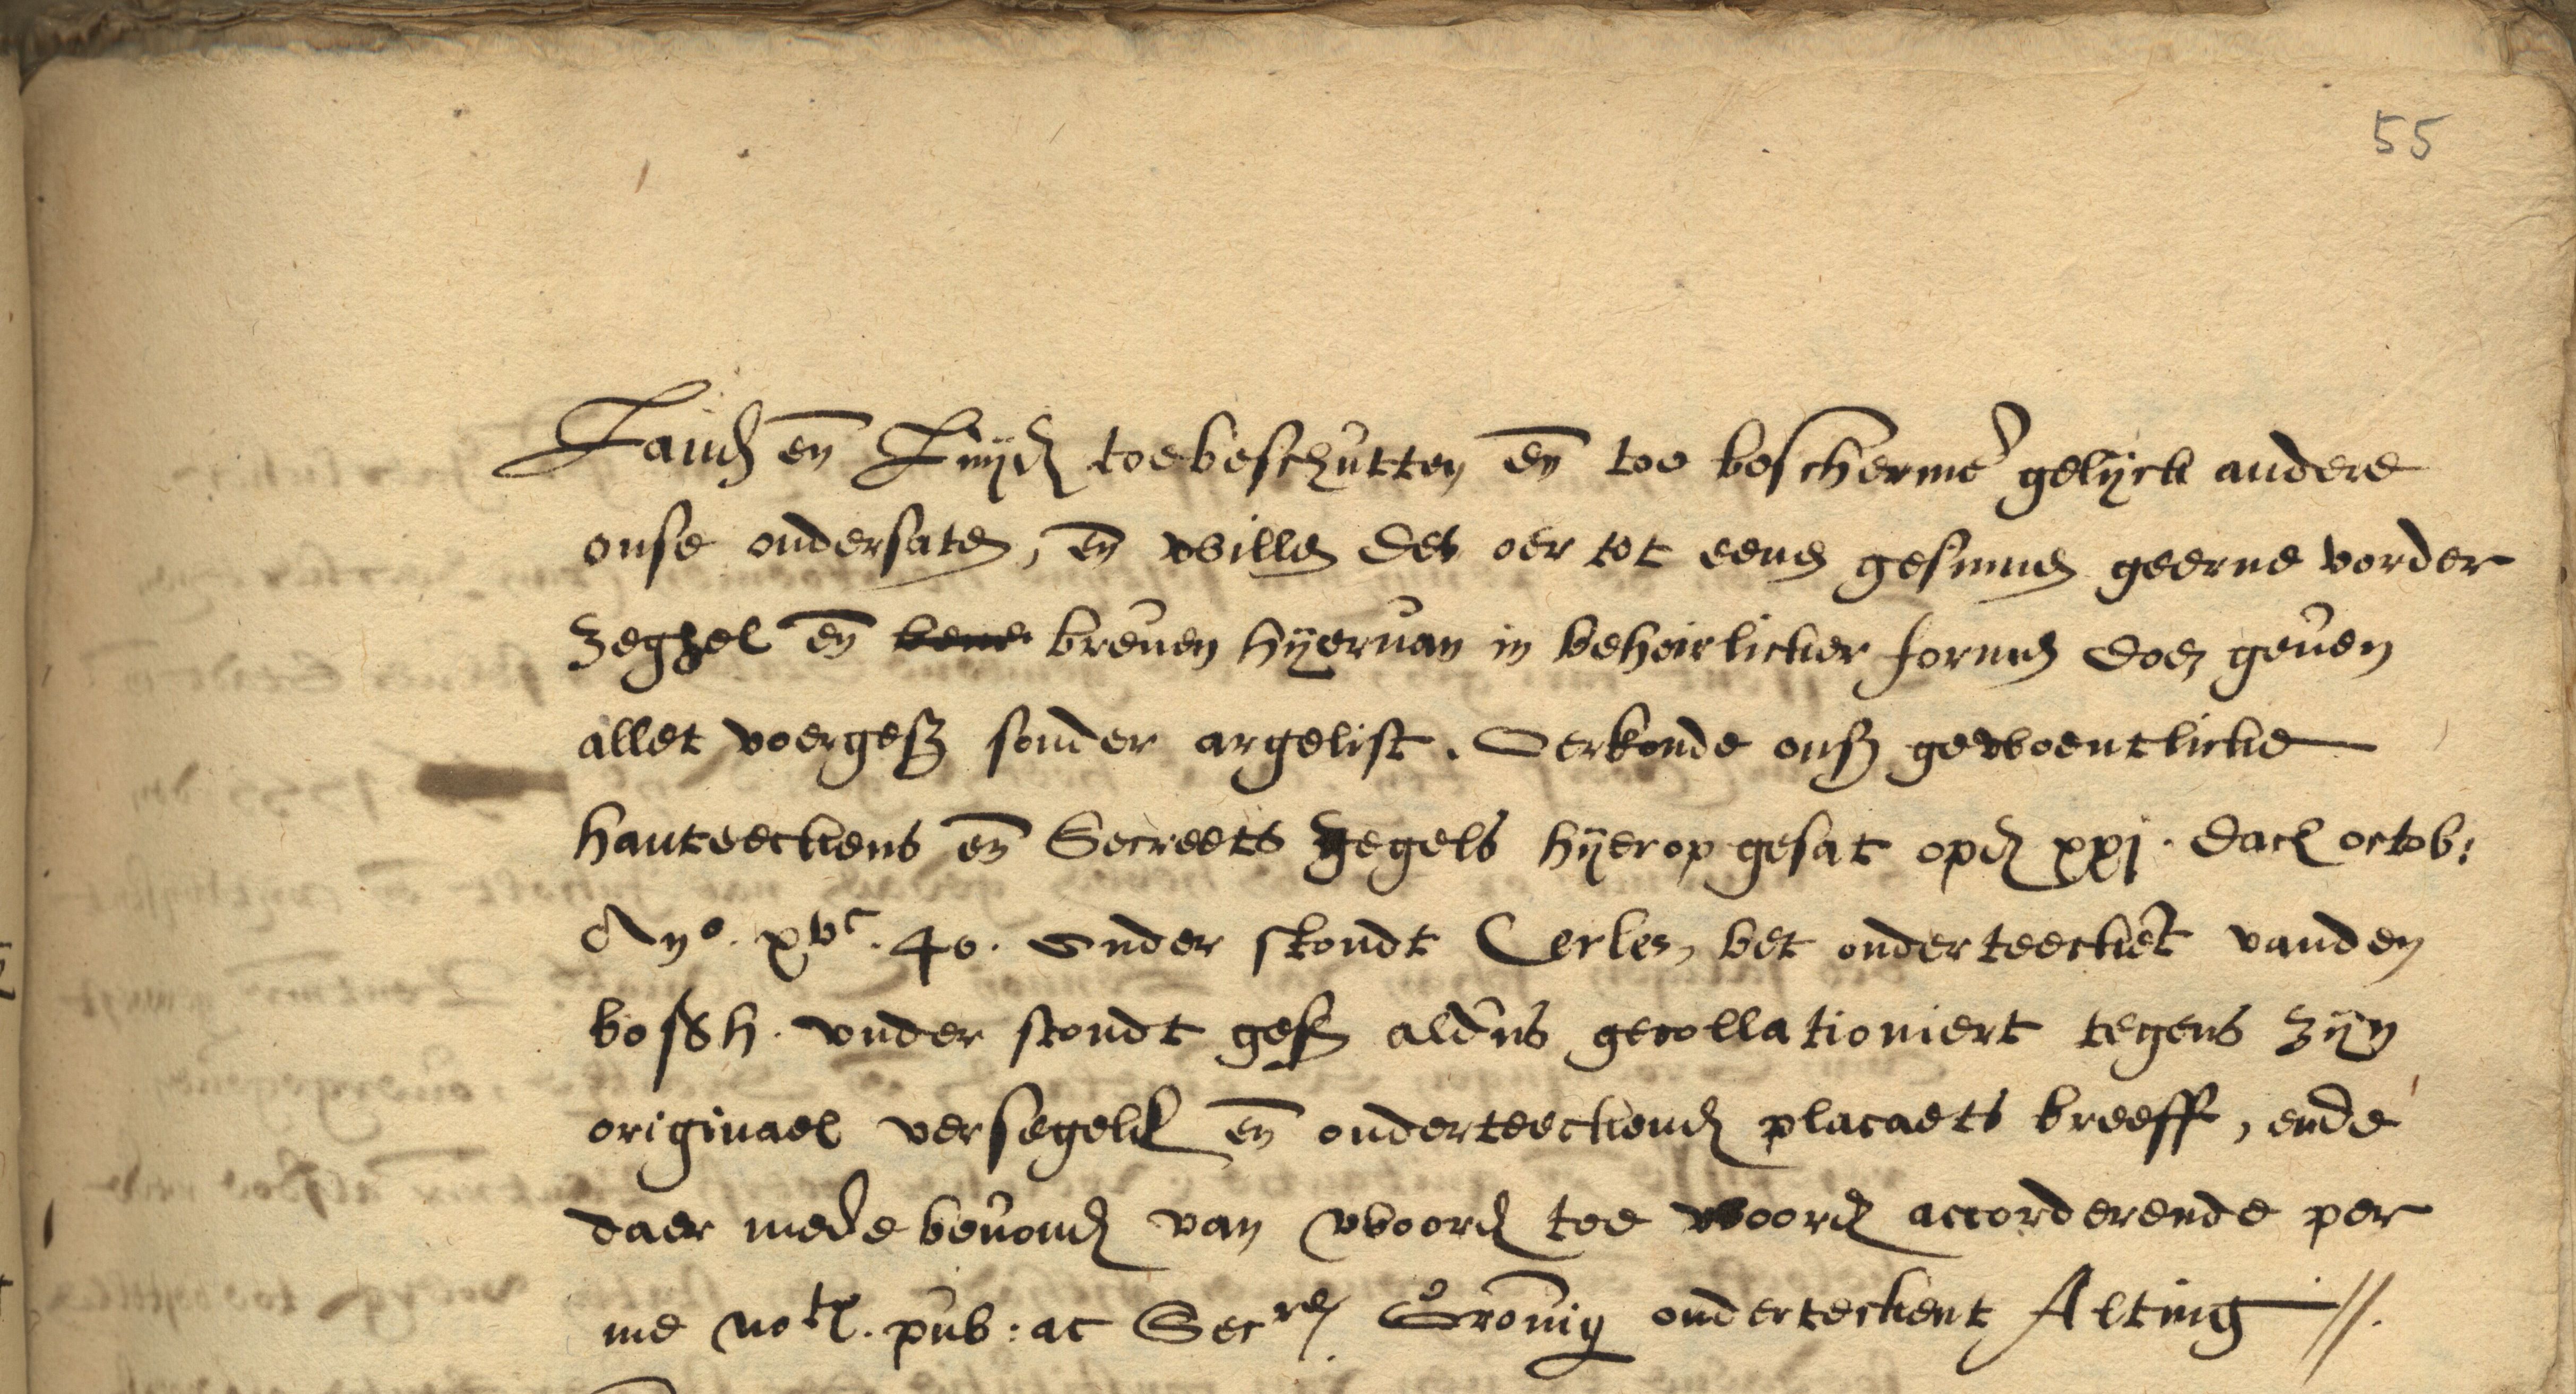 55
Land en Luyd toebeschutten en toe bescherme gelijck andere
onse ondersaten, en willen des oer tot eend gesinnen geerne vorder
zeghel en breuen hyeruan in behoirlicker formen doen geuen
allet voergesz sonder argelist. Oerkonde onsz gewoentlicke
hanteeckens en Secreets zegels hyerop gesat opd xxj. dach octob:
Ano. xvc. 40. Onder stondt Cerles, bet onderteeckent vanden
bossh. vnder stondt gesz aldus gecollationiert tegens zyn
originael versegelt en onderteeckend placaets breeff, ende
daer mede beuond van woord toe woord accorderende per
me not. pub: ac Secre Gronig onderteckent Alting //.